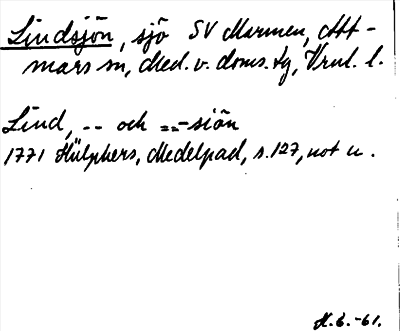 Lindsjön, sjö SV Marmen, Att-
mars sn, Med. v. doms. tg, Vrnl. l.
Lind, -- och ==-siön
1771 Hülphers, Medelpad, s. 127, not u.
H.G.-61.